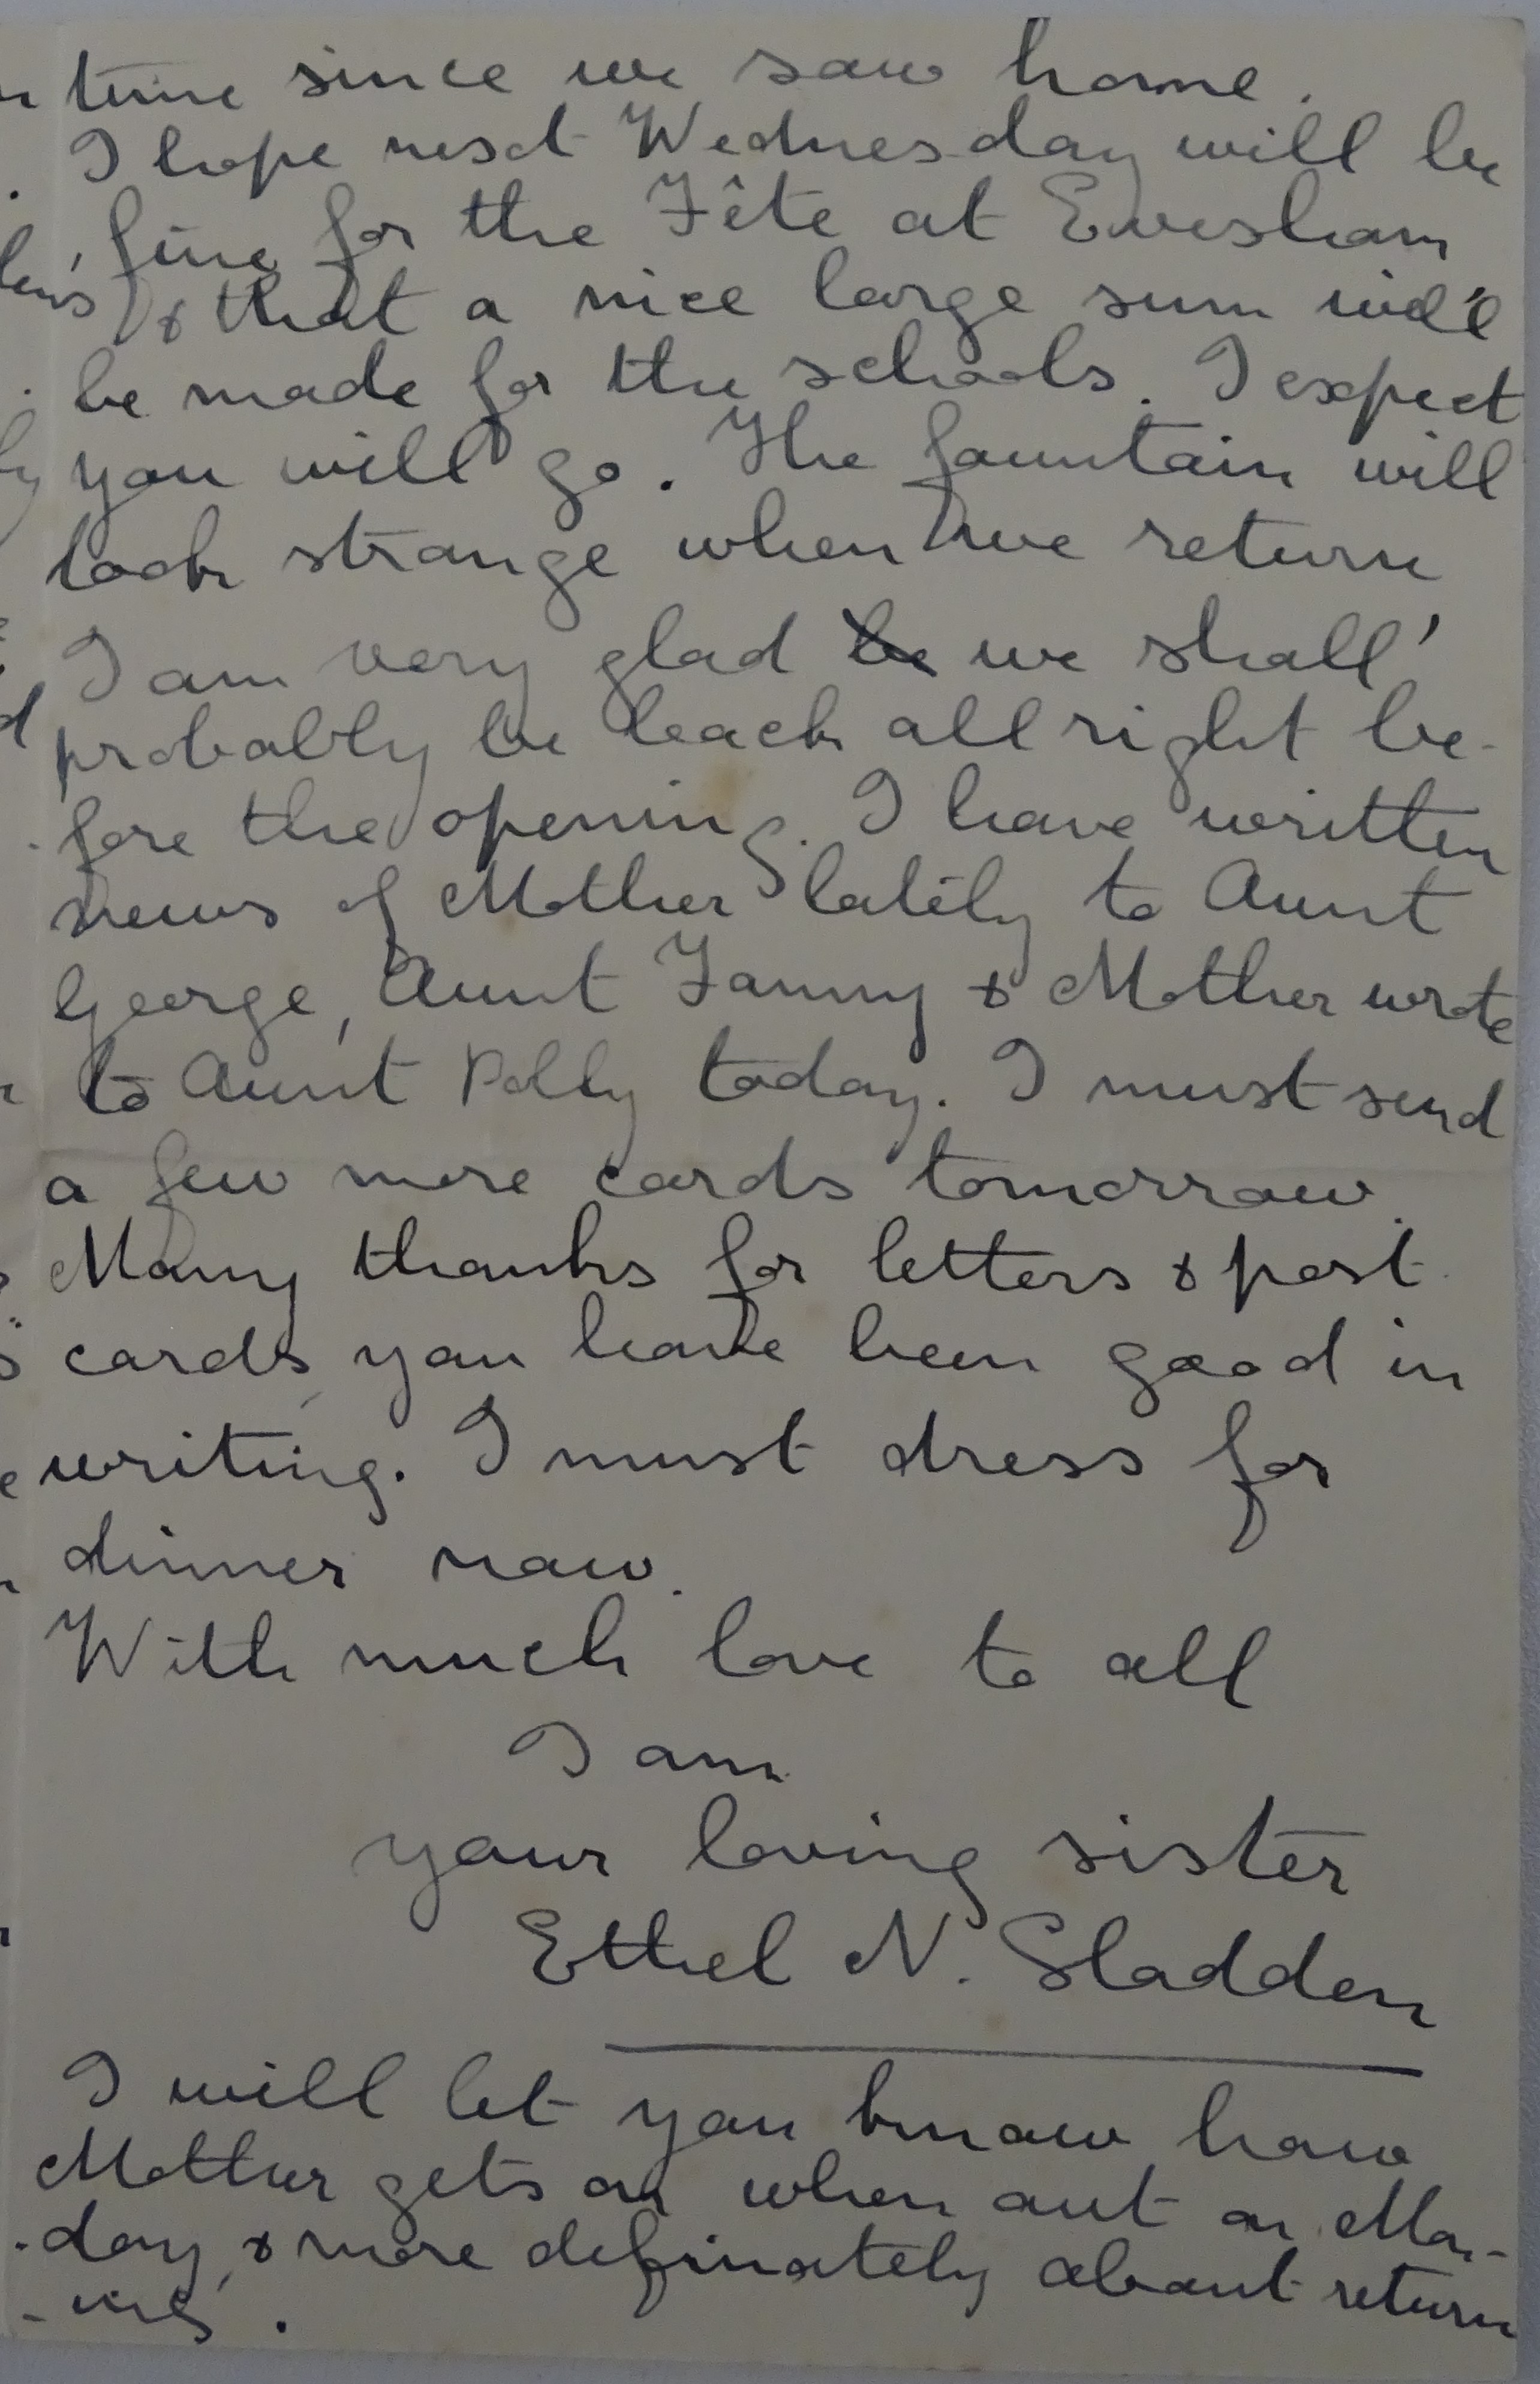 time since we saw home.
I hope next Wednesday will be
fine for the Fête at Evesham
& that a nice large sum will
be made for the schools. I expect
you will go. The fountain will
look strange when we return
I am very glad be we shall
probably be back all right be-
fore the opening. I have written
news of Mother lately to Aunt
George, Aunt Fanny & Mother wrote
to Aunt Polly today. I must send
a few more cards tomorrow.
Many thanks for letters & post
cards, you have been good in
writing. I must dress for
dinner now.
With much love to all
I am
your loving sister
Ethel N. Sladden
I will let you know how
Mother gets on when out on Mon-
-day, & more definately about return
-ing.